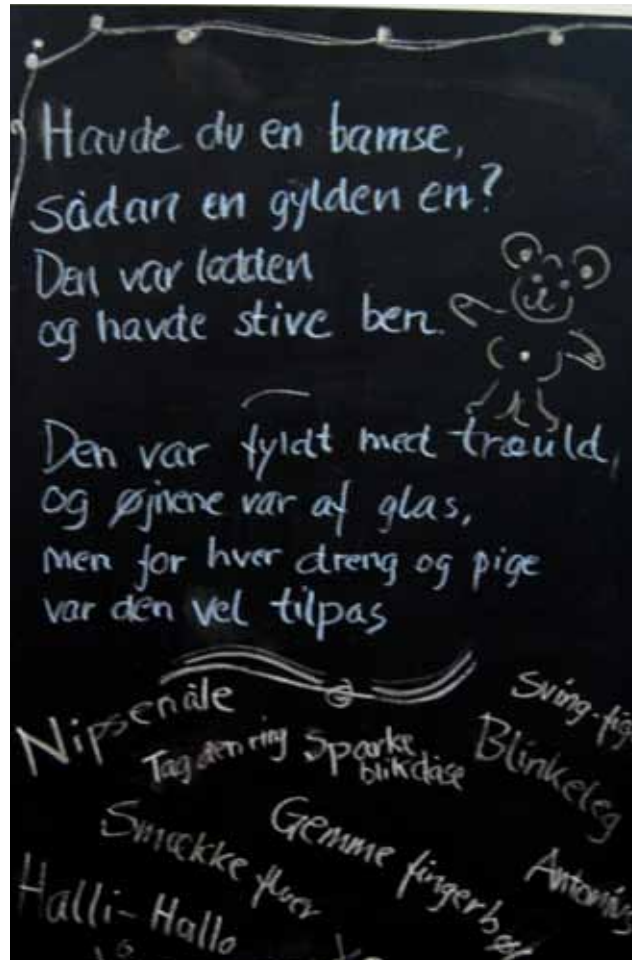 Havde du en bamse,
sådan en gylden en?
Den var lodden
og havde stive ben.
Den var fyldt med træuld,
og øjnene var af glas,
men for hver dreng og pige
var den vel tilpas
Nipsenåle
Tag den ring
Sparke
blikdåse
Blinkeleg
Smække fluer
Gemme fingerbøl
Halli-Hallo